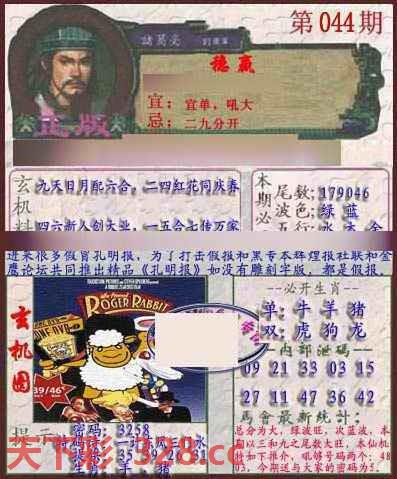 第044期
諸葛亮
穩贏
宜：宜单，吼大
忌：二九分开
正版
玄机料
九天日月配六合，二四红花同庆春
四六新人创大业，一五合七传万家
本期必
尾数:179046
波色:绿 蓝
五行:水 木 金
进来很多假冒孔明报，为了打击假报和黑专本辉煌报社联和金
鹰论坛共同推出精品《孔明报》如没有雕刻字版，都是假报，
玄机图
ROGER RABBIT
39/46
--必开生肖--
单:牛羊猪
双:虎狗龙
--内部泄码--
09 21 33 03 15
27 11 47 36 42
马會最新統計:
总分为大，绿波旺，次蓝波，本
期以三和九之尾数大旺，本仙机
料如下推介，吼够号码两个：48
03，今期送与大家的密码为5.
提示
密码: 3258
天下彩 328.cc